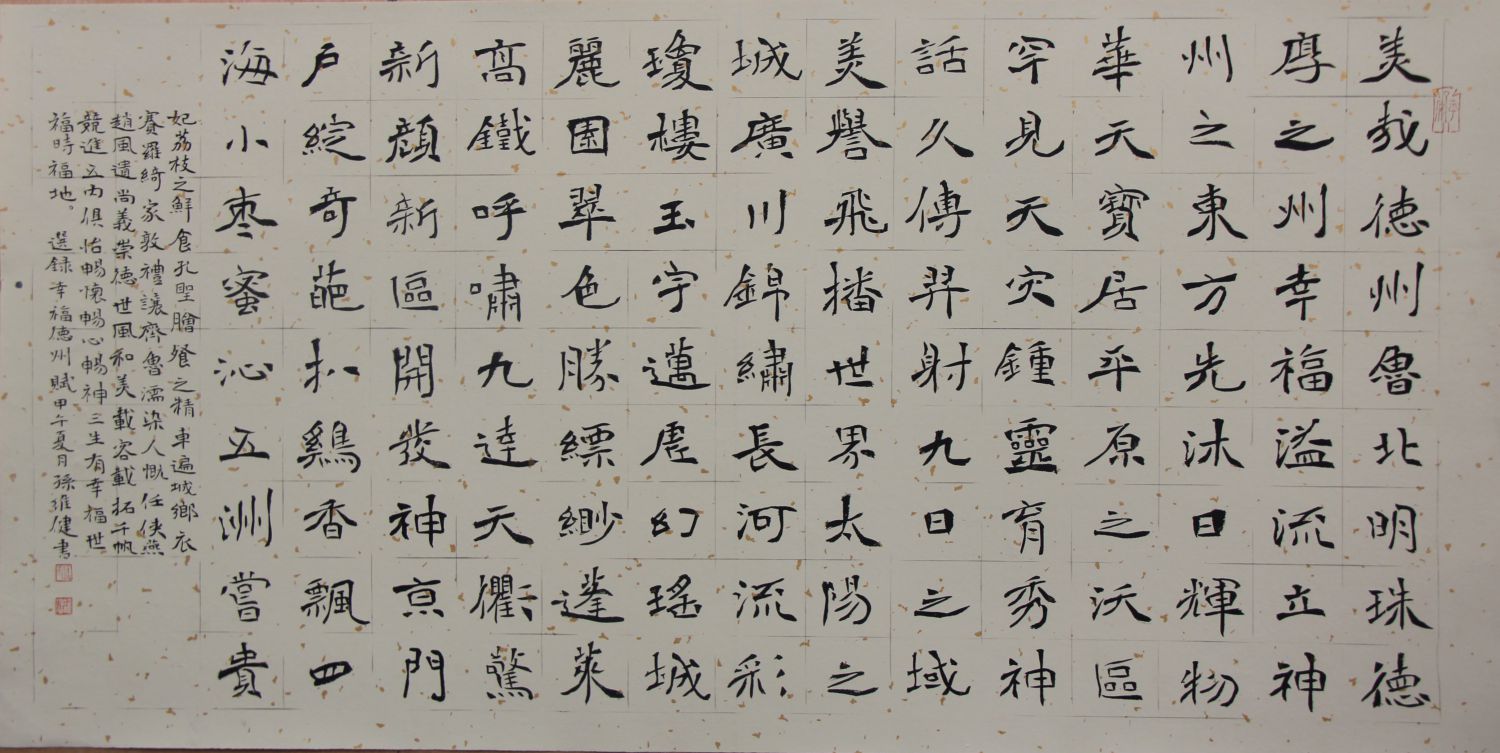 美哉德州魯北明珠德
厚之州幸福溢流立神
州之東方先沐日輝物
華天寶居平原之沃區
罕見天灾鍾靈育秀神
話久傳羿射九日之域
美譽飛播世界太陽之
城廣川錦繡長河流彩
瓊樓玉宇邁虐幻瑤城
麗園翠色勝縹緲蓬萊
高鐵呼嘯九逵天衢驚
新顏新區開發神京門
户綻奇葩扒鷄香飄四
海小枣蜜沁五洲嘗貴
妃荔枝之鮮食孔聖膾餮之精車遍城鄉衣
賽羅綺家敦禮讓齊魯濡染人慨任俠燕
趙風遺尚義崇德世風和美載容載拓千帆
競進五内俱怡暢懷暢心暢神三生有幸福世
福時福地。選録幸福德州賦甲午夏月孫維健書